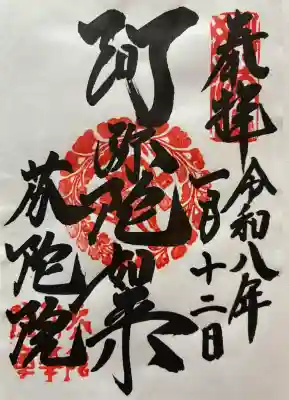 奉拝
令和八年
一月十二日
阿弥陀如来
陀院